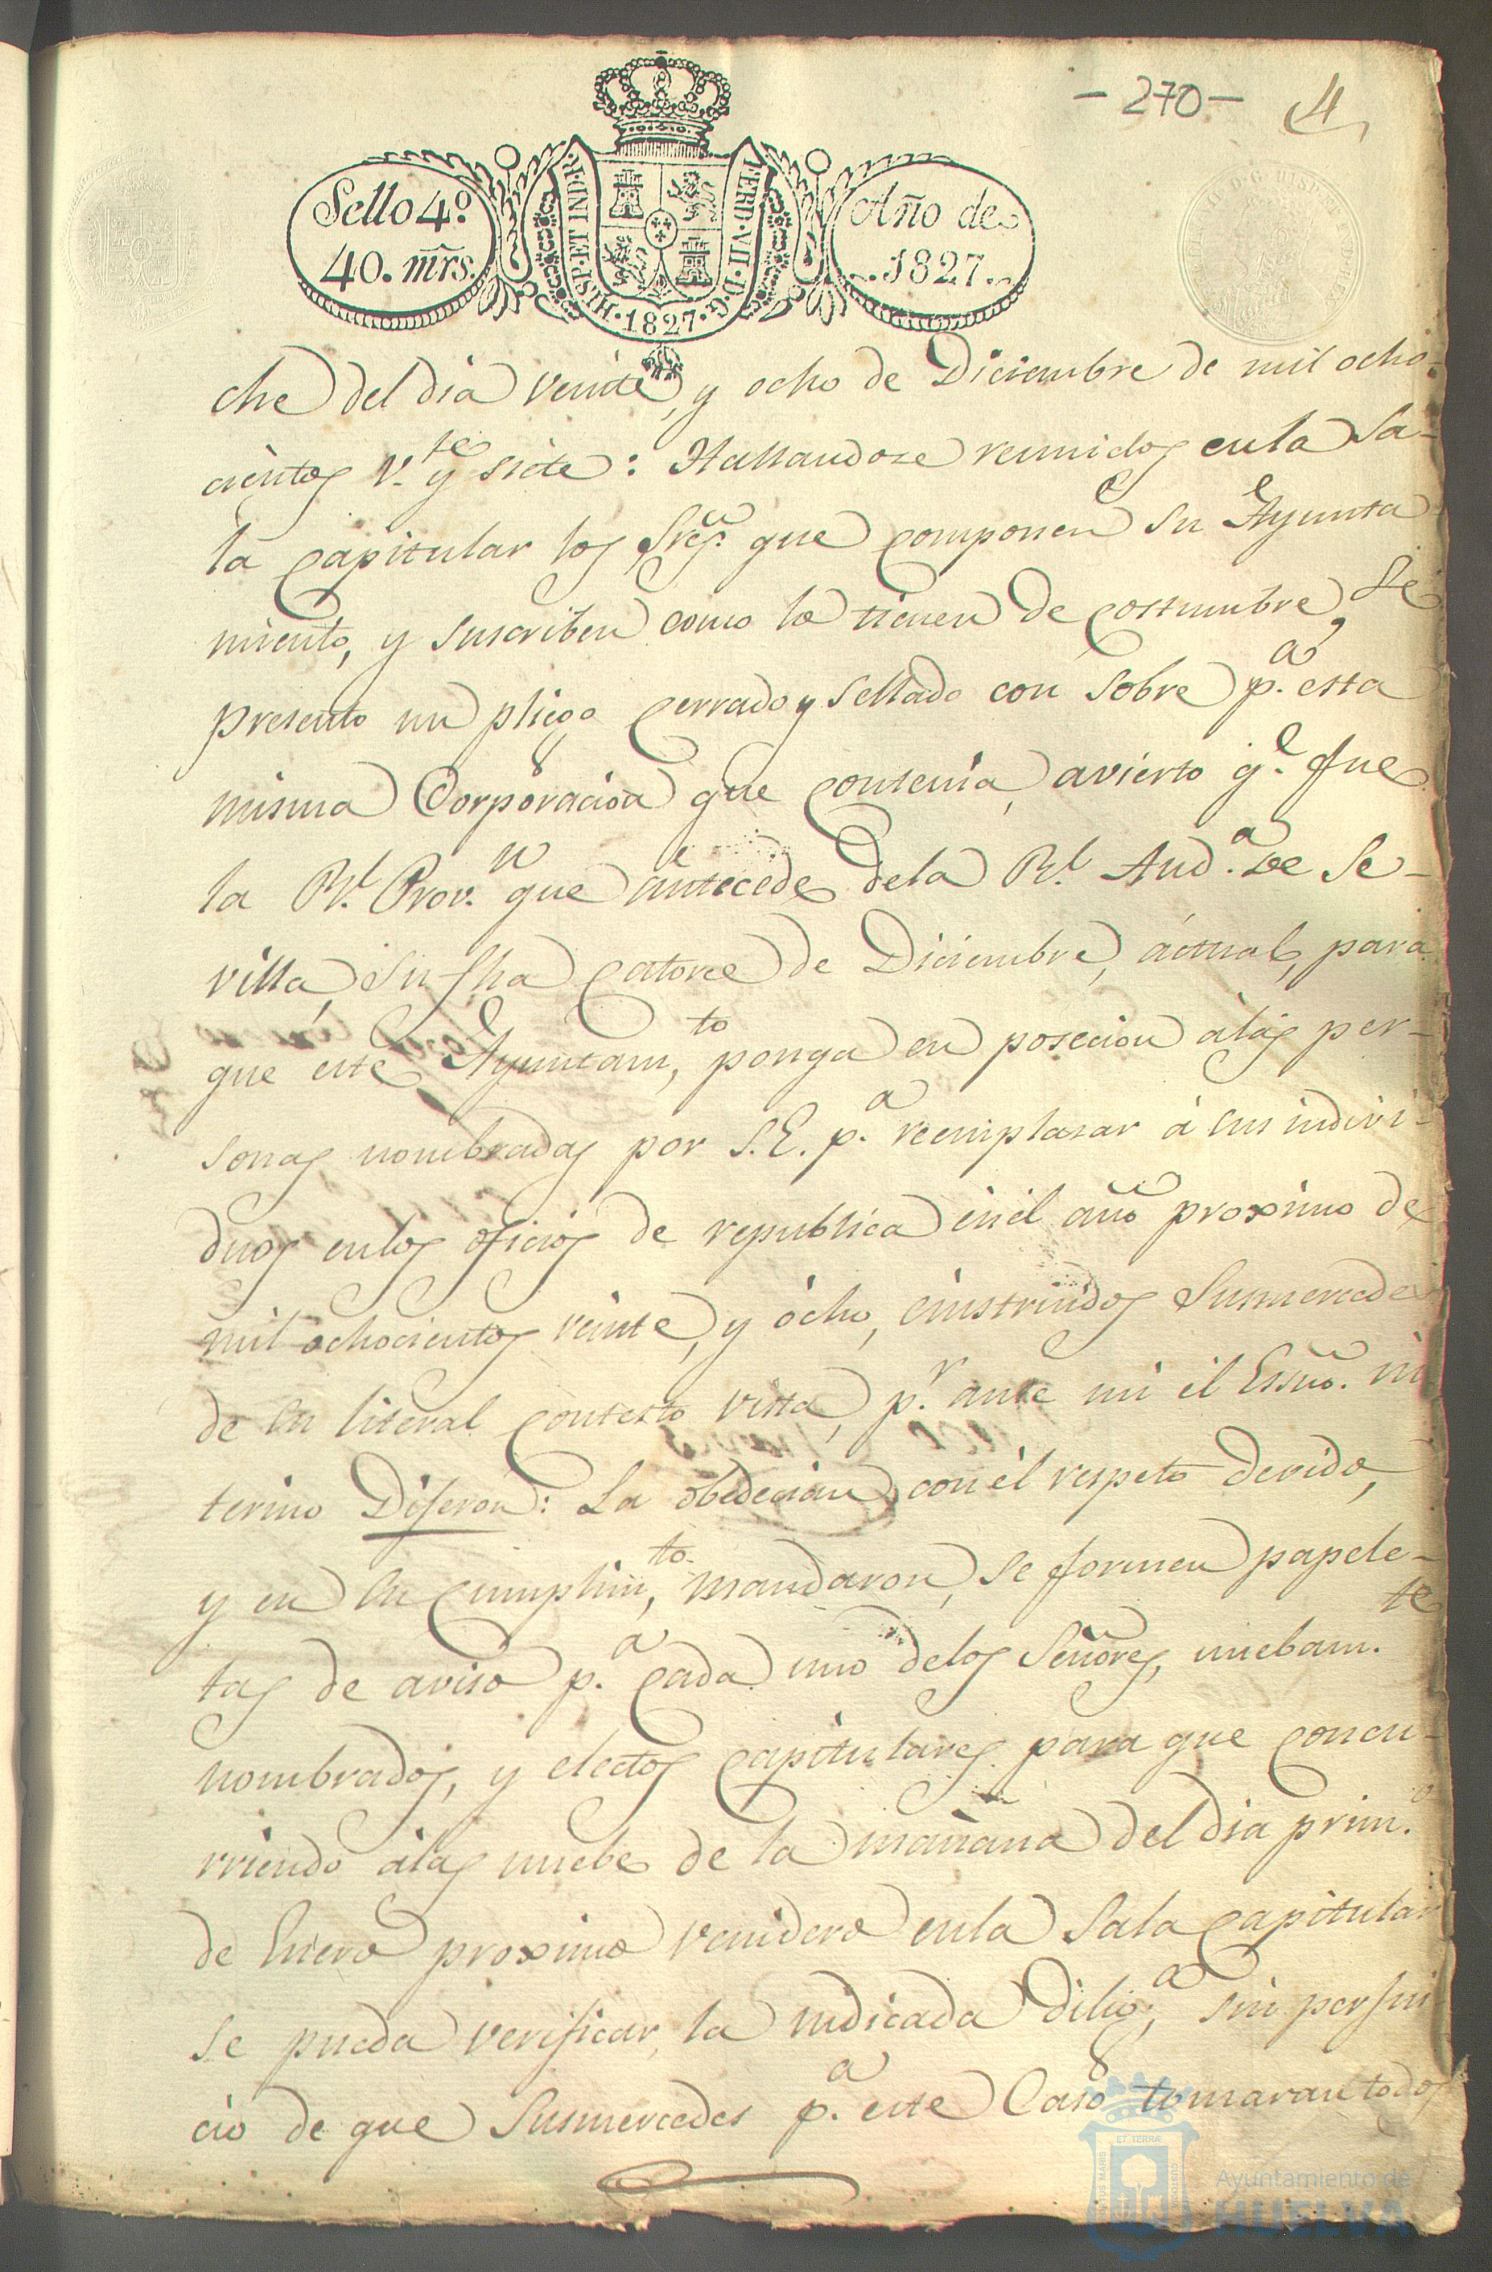 - 270 -
4
Sello 4º
40. mrs.
HISP. ET IND. R.
FERD. VII. D. G.
· 1827 ·
Año de
1827.
che del dia veinte, y ocho de Diciembre de mil ocho-
cientos v.te y siete: Hallandose reunidos en la Sa-
la capitular los Sres. que componen su Ayunta
miento, y suscriben como lo tienen de costumbre, se
presento un pliego cerrado y sellado con sobre p.a esta
misma Corporacion que contenia, avierto q.e fue
la Rl. Prov.n que antecede de la Rl. Aud.a de Se-
villa, su fha catorce de Diciembre, actual, para
que este Ayuntam.to, ponga en posecion à las per-
sonas nombradas por S.E. p.a reemplasar à sus indivi-
duos en los oficios de republica en el año proximo de
mil ochocientos veinte, y ocho, é instruidos Susmercedes
de su literal contesto vista, p.r ante mi el Essno. in
terino Dijeron: La obedecian con el respeto devido,
y en su cumplim.to, mandaron, se formen papele-
tas de aviso p.a cada uno de los Señores, nuebam.te
nombrados, y electos capitulares para que concu-
rriendo à las nuebe de la mañana del dia prim.o
de Enero proximo venidero en la Sala capitular
se pueda verificar la indicada dilig.a, sin perjui
cio de que Susmercedes p.a este Caso tomaran todos
Ayuntamiento de
HUELVA